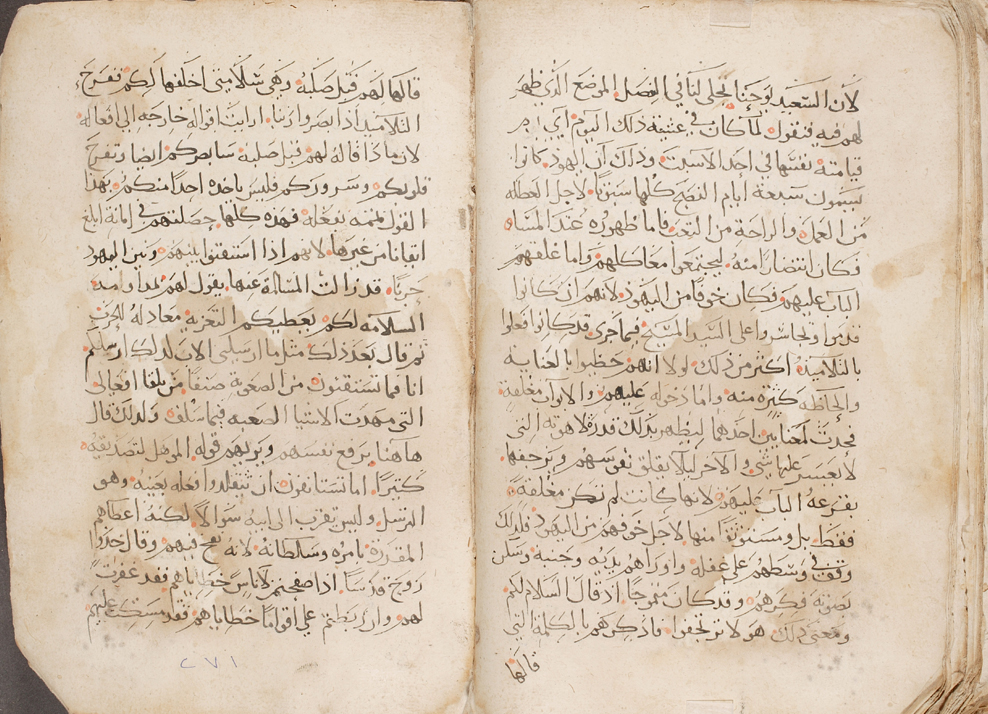 لان السعيد يوحنا تجلى لنا في الفصل الموضع الذي ظهر
لهم فيه فنقول لما كان في عشية ذلك اليوم اي
قيامته نفسها في احد الاسبت وذلك ان اليهود كانوا
يسمون سبعة ايام الفصح كلها سبتا لاجل العطله
من العمل والراحة من التعب فاما ظهوره عند المساء
فكان انتضارا منه ليجتمعوا معا كلهم واما غلقهم
الباب عليهم فكان خوفا من اليهود لانهم ان كانوا
قدروا وتجاسروا على السيد المسيح فيما جرى قد كانوا فعلوا
بالتلاميذ اكثر من ذلك لولا انهم حظيوا بالعنايه
والحاظه كثيره منه واما دخوله عليهم والابواب مغلقة
فحدث لمعنايين احدهما ليظهر بذلك قدرة لاهوته التي
لا يعسر عليها شي والاخر ليلا يقلق نفوسهم ويرجفها
بقرعه الباب عليهم لانها كانت لم تكن مغلقة
فقط بل ومستوثقا منها لاجل خوفهم من اليهود فلذلك
وقف في وسطهم على غفله واوراهم يديه وجنبه وسكن
بصوته فكرهم وقد كان متموجا اذ قال السلام لكم
ومعنى ذلك هو لا ترتجفوا فاذكرهم بالكلمة التي
قالها
قالها لهم قبل صلبه وهي سلامتي اخلفها لكم تفرح
التلاميذ اذا ابصروا ربنا ارايت اقواله خارجه الى افعاله
لان ماذا قاله لهم قبل صلبه سابصركم ايضا وتفرح
قلوبكم وسروركم فليس ياخذه احدا منكم بهذا
القول تممه بفعله فهذه كلها حصلتهم في امانة ابلغ
اتقانا من غيرها لانهم اذا استقتوا بينهم وبين اليهود
حربا قد زالت المسالة عنها يقول لهم
السلامه لكم يعطيكم التعزيه معادله للحرب
ثم قال بعد ذلك مثل ما ارسلني الاب لذلك ارسلكم
انا فما تستنقون من الصعوبة صنفا من تلقا افعالي
التي مهدت الاشيا الصعبه فيما سلف ولذلك قال
هاهنا يرفع نفسهم ويريهم قوله الموهل لتصديقه
كثيرا اما تستانفون ان تتقلدوا فعله بعينه وهو
المرسل وليس تقرب الى ابيه سوالا لكنه اعطاهم
المقدرة بامره وسلطانه لانه نفخ فيهم وقال خذوا
روح قدسا اذا صفحتم لاناس خطاياهم فقد غفرت
لهم وان ربطتم على اقواما خطاياهم فقد مسكت عليهم
٢٧١